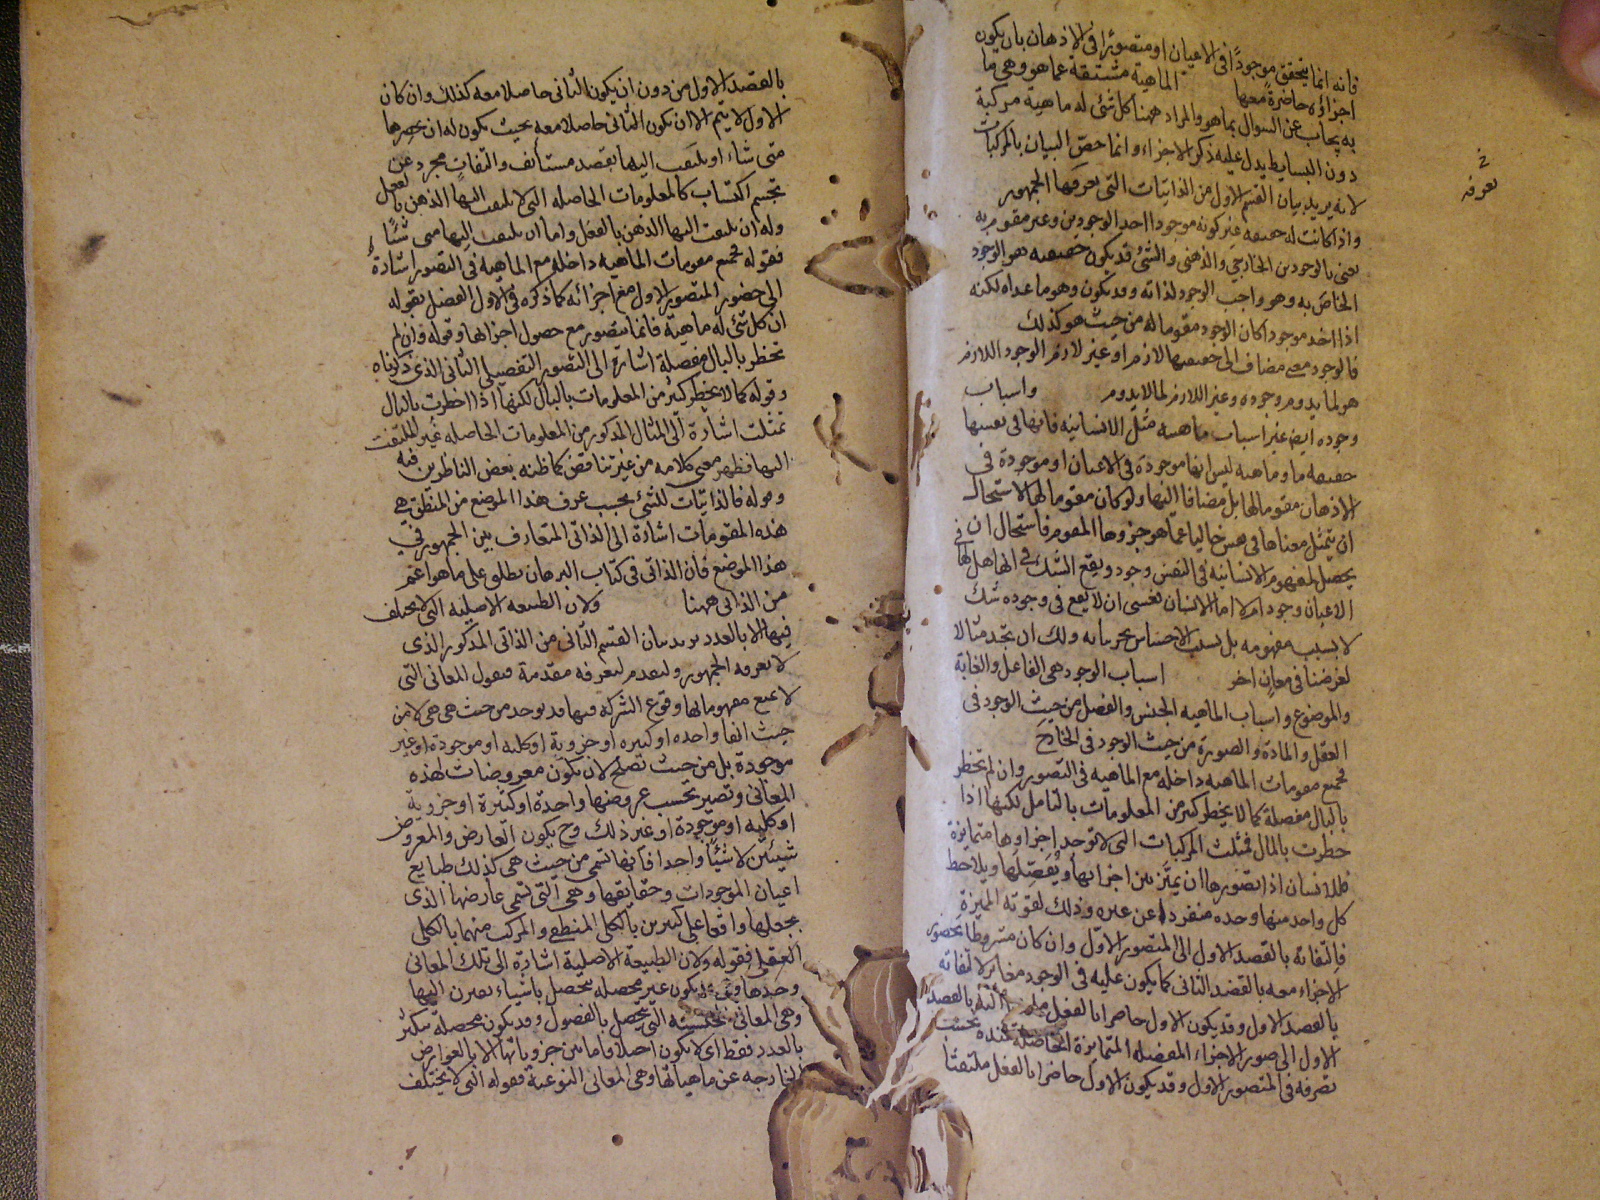 فانه انما يتحقق موجودًا فى الاعيان او متصورًا فى الاذهان بان يكون
اجزاؤه حاضرةً معها الماهية مشتقة عما هو وهى ما
به يجاب عن السوال بما هو والمراد ههنا كل شئ له ماهية مركبة
دون البسايط يدل عليه ذكر الاجزاء وانما خص البيان بالمركبات
تعرفه
لانه يريد بيان القسم الاول من الذاتيات التى يعرفها الجمهور
واذا كانت له حقيقه غير كونه موجودا احد الوجودين وغير مقوم به
يعنى بالوجودين الخارجى والذهنى والشئ قد يكون حقيقيه هو الوجود
الخاص به وهو واجب الوجود لذاته وقد يكون وهو ما عداه لكنه
اذا اخذ موجودا كان الوجود مقوما له من حيث هو كذلك
فالوجود معنى مضاف الى حقيقيها لازم او غير لازم الوجود اللازم
هو لما يدوم وجوده وغير اللازم لما لا يدوم واسباب
وجوده ايضا غير اسباب ماهيته مثل الانسانيه فانها فى نفسها
حقيقه ما وماهيه ليس انها موجودة فى الاعيان او موجودة فى
الاذهان مقوما لها بل مضافا اليها ولو كان مقوما لها لاستحال
ان يتمثل معناها فى النفس خاليا عما هو جزوها المقوم فاستحال ان
يحصل لمفهوم الانسانيه فى النفس وجود ويقع الشك فى انها هل لها فى
الاعيان وجود ام لا اما الانسان فعسى ان لا يقع فى وجوده شك
لا بسبب مفهومه بل بسبب الاحساس بجزياته ولك ان تجد مثالا
لغرضنا فى معانٍ اخر اسباب الوجود هى الفاعل والغاية
والموضوع واسباب الماهيه الجنس والفصل من حيث الوجود فى
العقل والمادة والصورة من حيث الوجود فى الخارج
فجميع مقومات الماهيه داخله مع الماهيه فى التصور وان لم تخطر
بالبال مفصلة كما لا يخطر كثير من المعلومات بالبال لكنها اذا
خطرت بالبال تمثلت المركبات التى لا توجد اجزاوها متمايزة
فللانسان اذا تصورها ان يميّز بين اجزائها ويُفَصِّلَها ويلاحظ
كل واحد منها وحده منفردا عن غيره وذلك لقوته المميزة
فالتفاته بالقصد الاول الى المتصور الاوّل وان كان مشروطا بحضور
الاجزاء معه بالقصد الثانى كما يكون عليه فى الوجود مغاير لالتفاته
بالقصد الاول وقد يكون الاول حاضرا بالفعل بالقصد
الاول الى صور الاجزاء المفصله المتمايزة الحاصلة عنده بحسب
تصرفه فى المتصور الاول وقد يكون الاول حاضرا بالفعل ملتفتا
بالقصد الاول من دون ان يكون الثانى حاصلا معه كذلك وان كان
الاول لا يتم الا ان يكون الثانى حاصلا معه بحيث يكون له ان يحضرها
متى شاء او يلتفت اليها بقصد مستأنف والتفاتٍ مجرد عن
تجسم اكتساب كالمعلومات الحاصله التى لا يلتفت اليها الذهن بالفعل
وله ان يلتفت اليها الذهن بالفعل واما ان يلتفت اليها متى شاء
فقوله فجميع مقومات الماهيه داخله مع الماهيه فى التصور اشارة
الى حضور المتصور الاول مع اجزائه كما ذكره فى اول الفصل بقوله
ان كل شئ له ماهية فانما يتصور مع حصول اجزائها وقوله وان لم
تخطر بالبال مفصلة اشارة الى التصور التفصيلى الثانى الذى ذكرناه
وقوله كما لا يخطر كثير من المعلومات بالبال لكنها اذا اخطرت بالبال
تمثلت اشارة الى المثال المذكور من المعلومات الحاصله غير الملتفت
اليها فظهر معنى كلامه من غير تناقض كما ظنه بعض الناظرين فيه
وقوله فالذاتيات للشئ بحسب عرف هذا الموضع من المنطق هى
هذه المقومات اشارة الى الذاتى المتعارف بين الجمهور فى
هذا الموضع فان الذاتى فى كتاب البرهان يطلق على ما هو اعم
من الذاتى ههنا ولان الطبيعه الاصليه التى لا يختلف
فيها الا بالعدد يريد بيان القسم الثانى من الذاتى المذكور الذى
لا يعرفه الجمهور وليقدم لتعرفه مقدمة فنقول المعانى التى
لا يمنع مفهوماتها وقوع الشركه فيها قد يوجد من حيث هى هى لا من
حيث انها واحده او كثيره او جزوية او كليه او موجودة او غير
موجودة بل من حيث تصلح لان يكون معروضات لهذه
المعانى وتصير بحسب عروضها واحدة او كثيرة او جزوية
او كليه او موجودة او غير ذلك وح يكون العارض والمعروض
شيئين لا شيئًا واحدا فانها تسمى من حيث هى كذلك طبايع
اعيان الموجودات وحقايقها وهى التى تسمى عارضها الذى
يجعلها واقعا على كثيرين بالكلى المنطقى والمركب منهما بالكلى
العقلى فقوله ولان الطبيعة الاصلية اشارة الى تلك المعانى
وحدها وهى قد يكون غير محصله يتحصل باشياء تقترن اليها
وهى المعانى الجنسيه التى يتحصل بالفصول وقد يكون محصله يتكثر
بالعدد فقط اى لا يكون اختلاف ما بين جزوياتها الا بالعوارض
الخارجه عن ماهياتها وهى المعانى النوعية فقوله التى لا يختلف